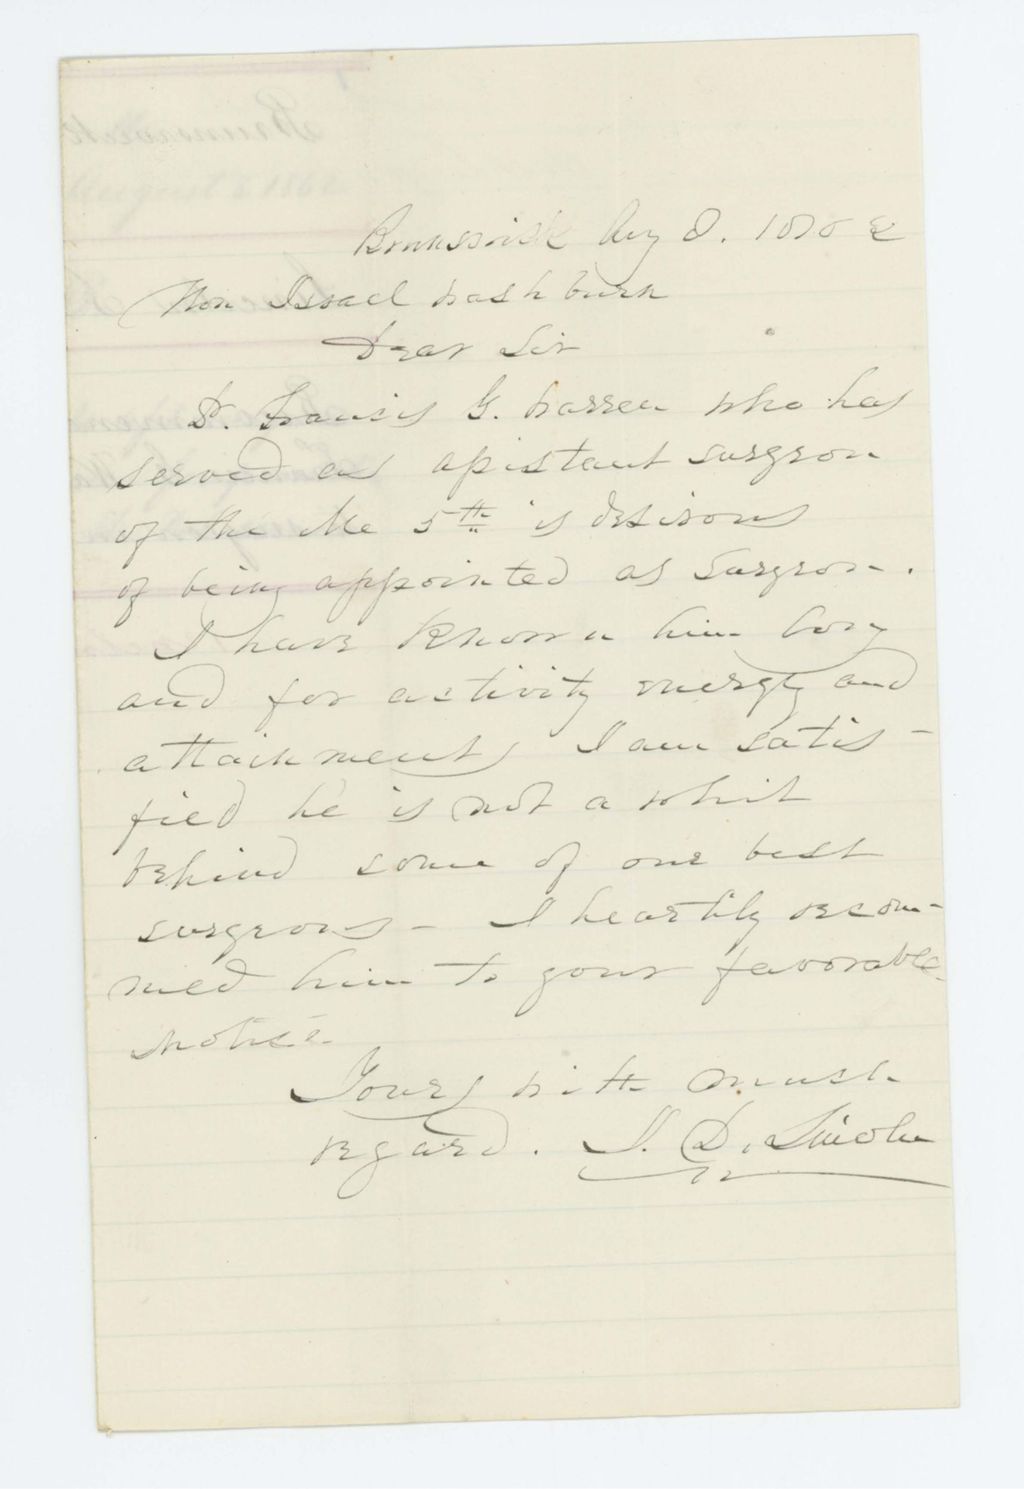 Brunswick Aug 8. 1862
Hon Israel Washburn
Dear Sir
Dr. Francis G. Warren who has
served as assistant surgeon
of the Me 5th is desirous
of being appointed as surgeon.
I have known him long
and for activity energy and
attainments I am satis-
fied he is not a whit
behind some of our best
surgeons - I heartily recom-
med him to your favorable
notice
Yours with much
regard. J. D. Lincoln